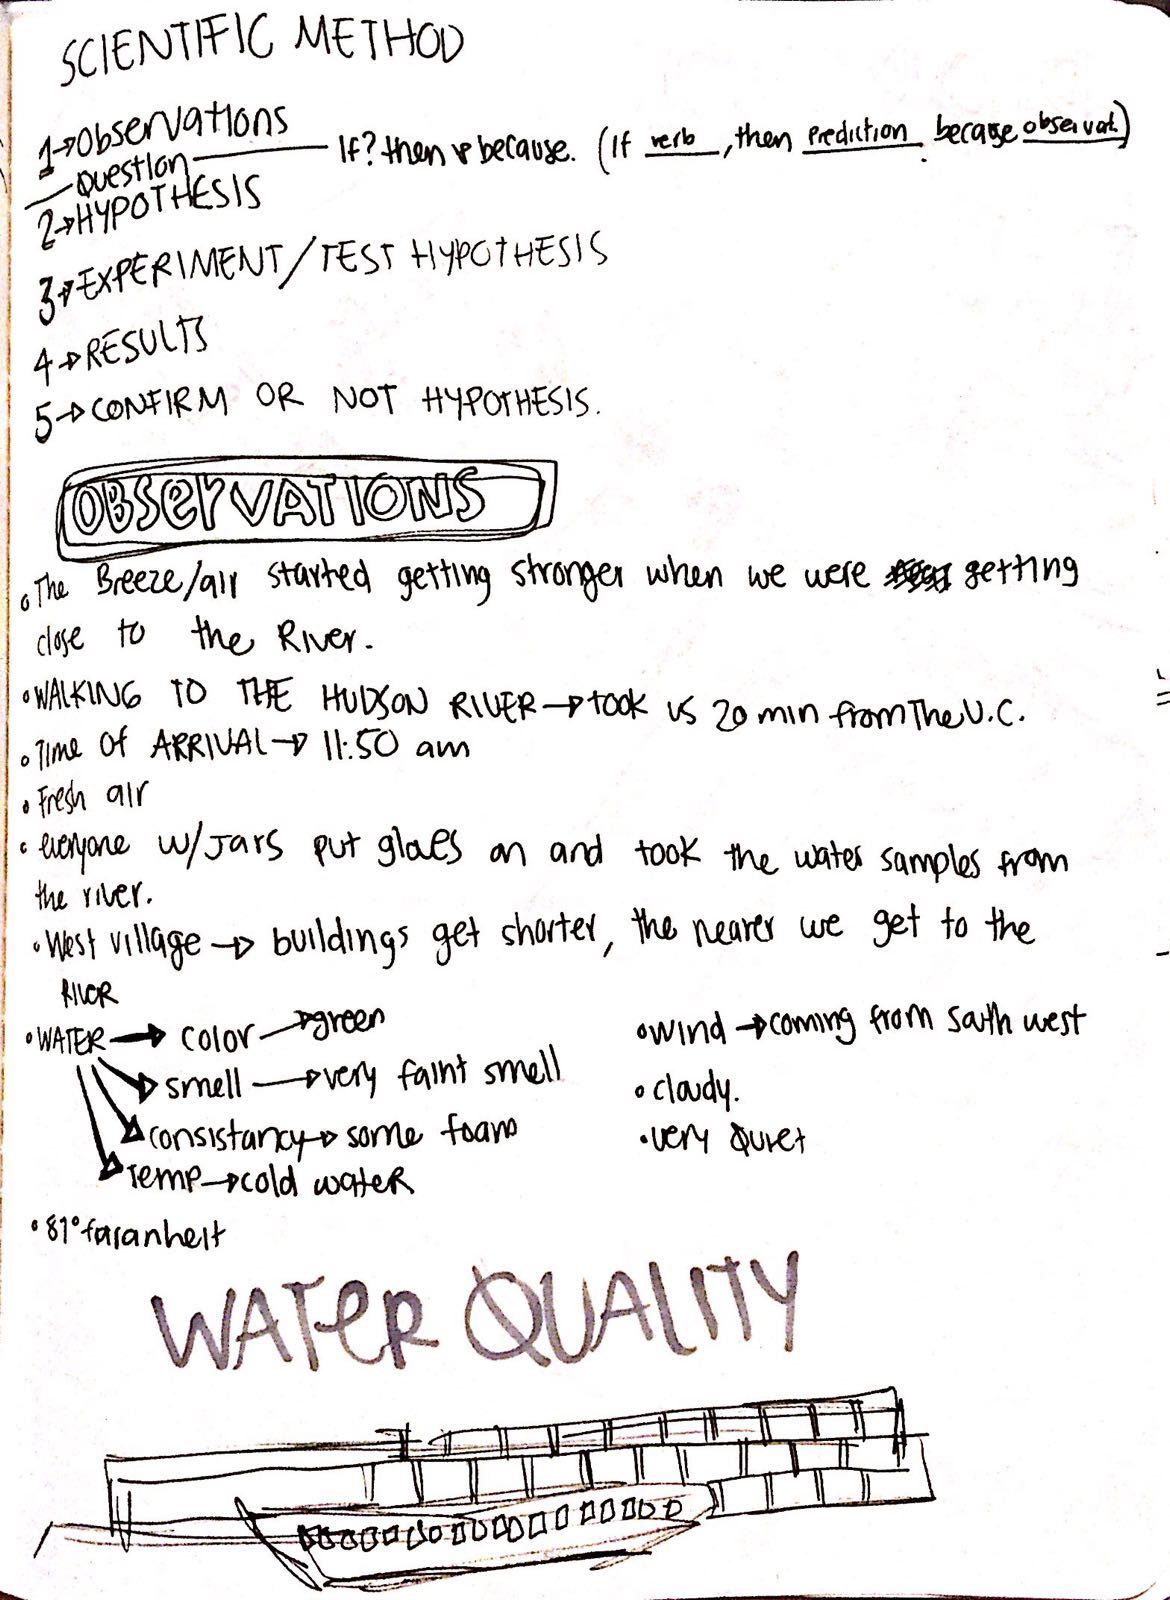 SCIENTIFIC METHOD
1→Observations
Question — If? then & because. (If verb, then prediction because observat.)
2→HYPOTHESIS
3→EXPERIMENT/TEST HYPOTHESIS
4→RESULTS
5→CONFIRM OR NOT HYPOTHESIS.
OBSERVATIONS
• The Breeze/air started getting stronger when we were getting
close to the River.
• WALKING TO THE HUDSON RIVER→took us 20 min from The U.C.
• Time of ARRIVAL→ 11:50 am
• Fresh air
• everyone w/Jars put gloes on and took the water samples from
the river.
• West village → buildings get shorter, the nearer we get to the
River
• WATER → color → green
smell → very faint smell
consistancy → some foam
Temp → cold water
• wind → coming from south west
• cloudy.
• very Quiet
• 81° faranheit
WATER QUALITY